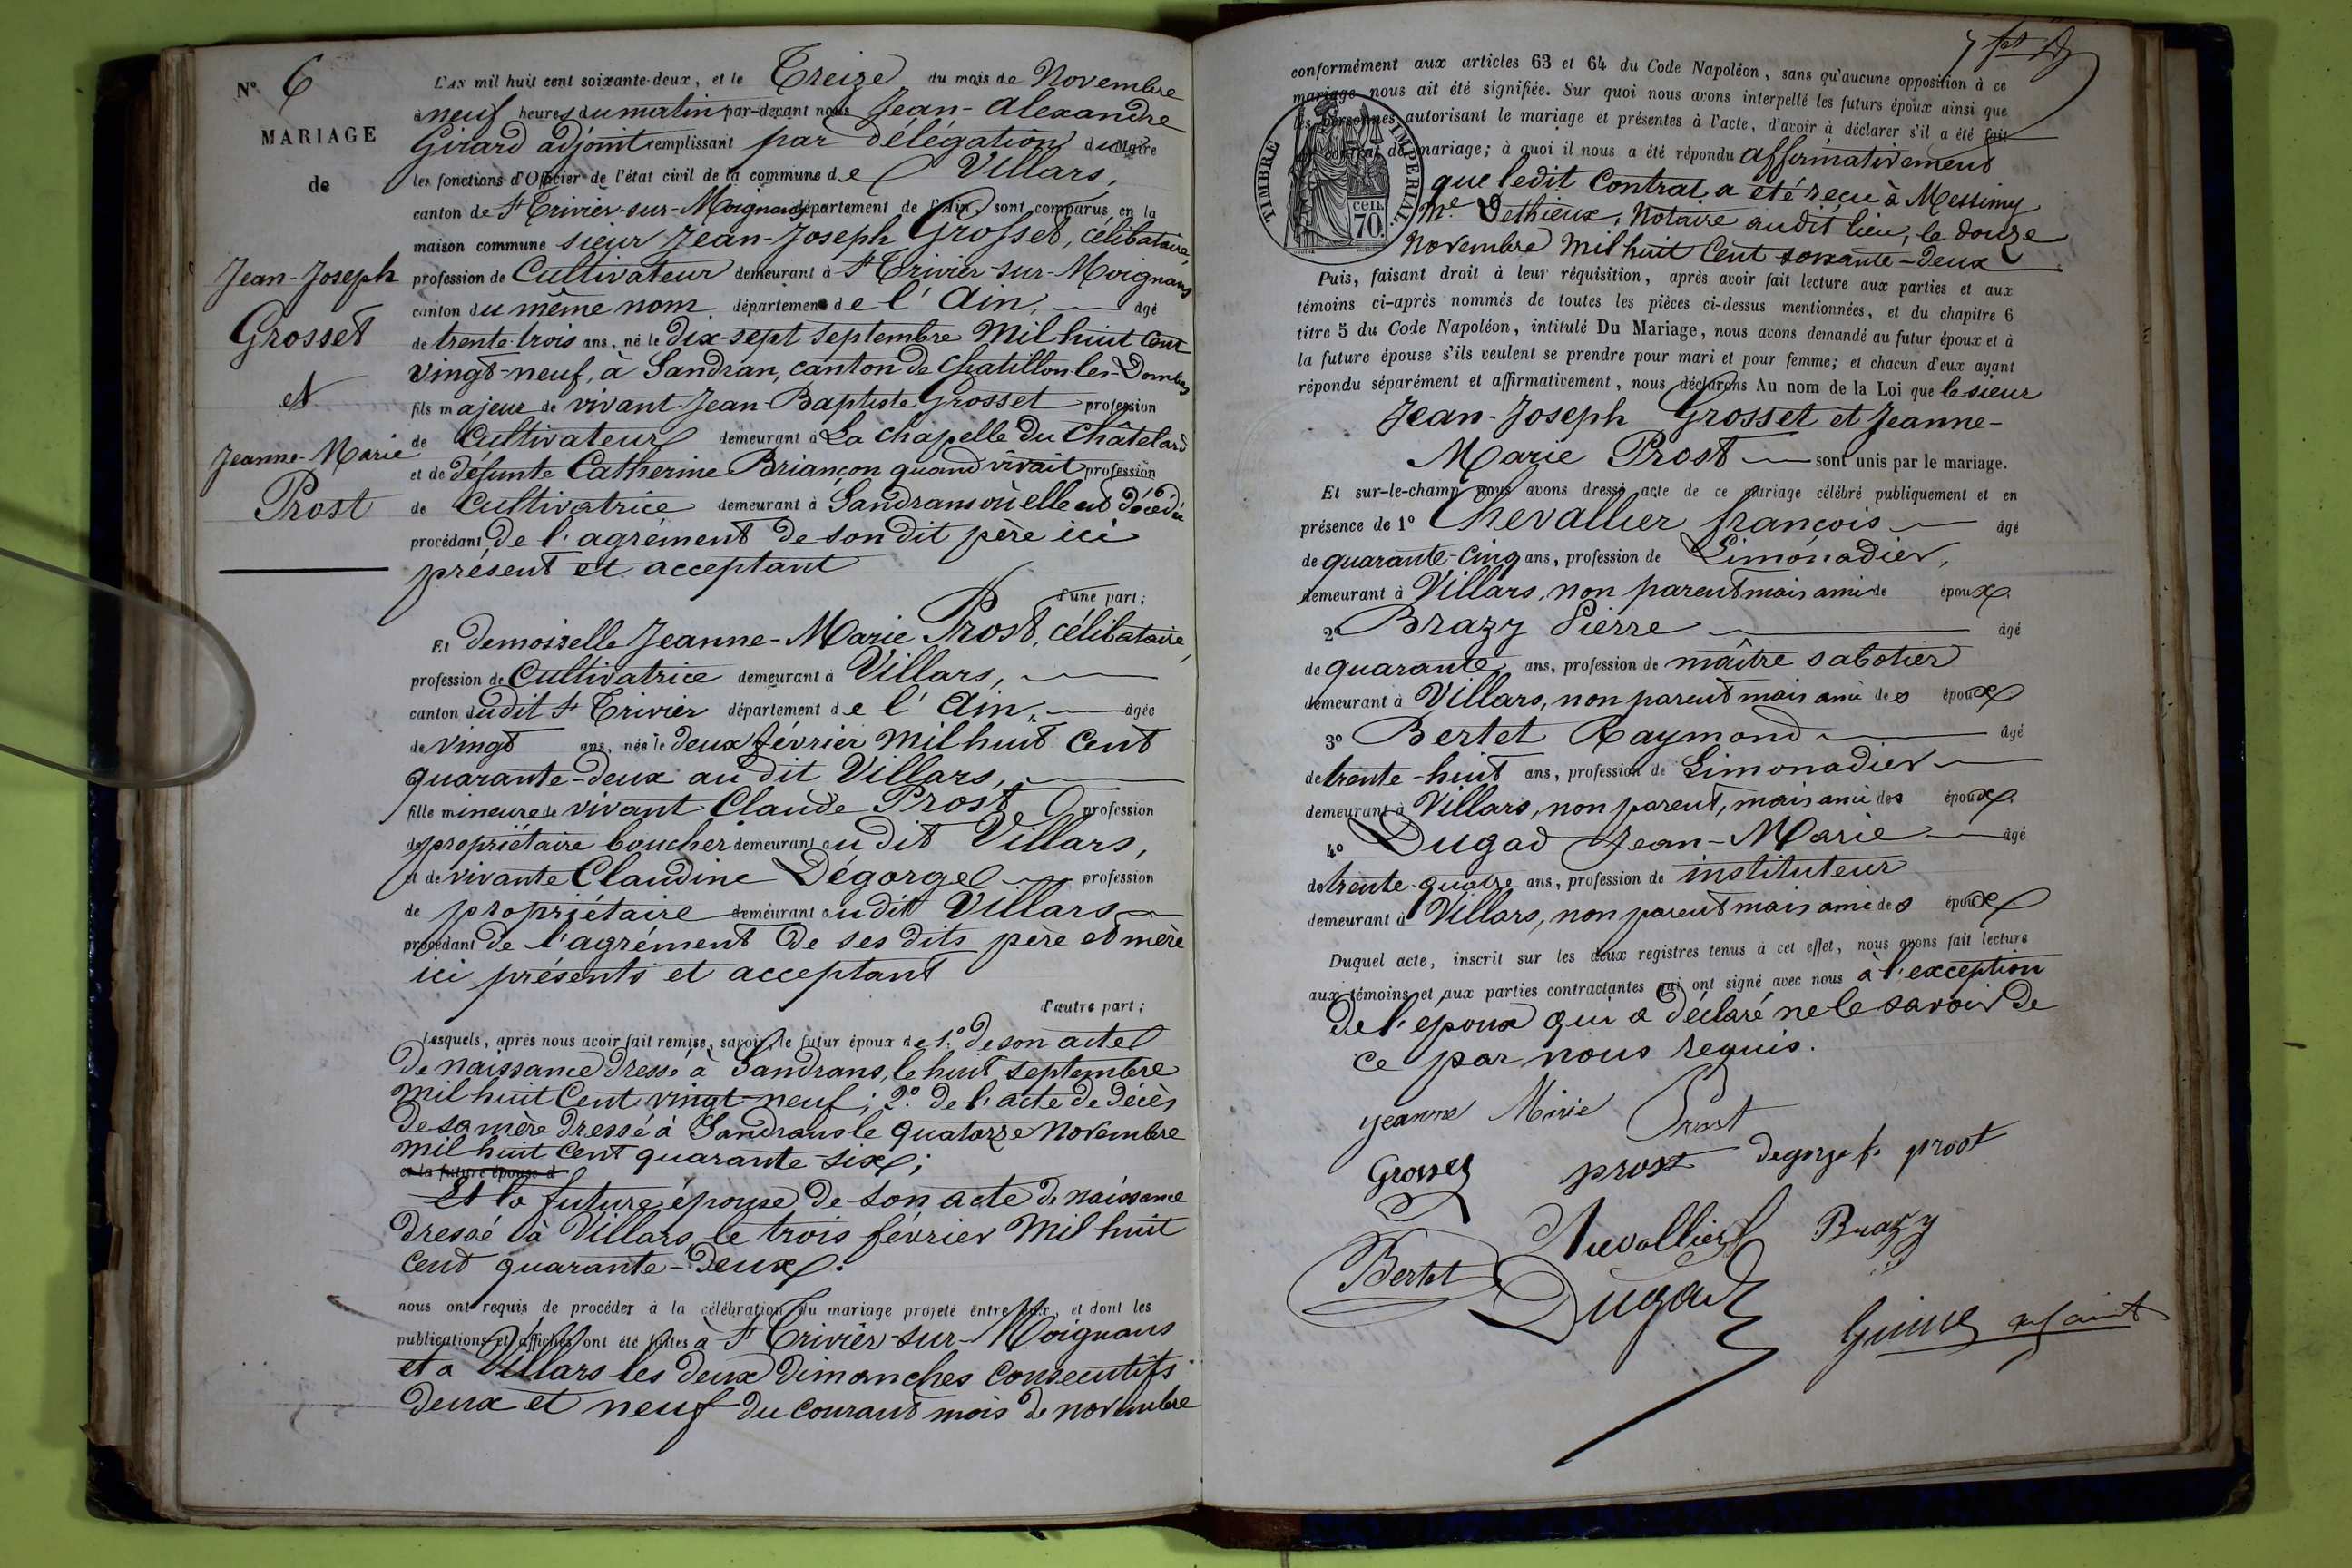 N° 6
MARIAGE
de
Jean-Joseph
Grosset
et
Jeanne-Marie
Prost
L'AN mil huit cent soixante-deux, et le Treize du mois de Novembre
à neuf heures du matin par-devant nous Jean-Alexandre
Girard adjoint remplissant par délégation du Maire
les fonctions d'Officier de l'état civil de la commune de Villars,
canton de St Trivier-sur-Moignans département de l'Ain, sont comparus en la
maison commune sieur Jean-Joseph Grosset, célibataire,
profession de Cultivateur demeurant à St Trivier-sur-Moignans
canton du même nom département de l'Ain, âgé
de trente-trois ans, né le Dix-sept Septembre Mil huit Cent
vingt-neuf, à Sandran, canton de Chatillon-les-Dombes
fils majeur de vivant Jean-Baptiste Grosset profession
de Cultivateur demeurant à La chapelle du Châtelard
et de défunte Catherine Briançon quand vivait profession
de Cultivatrice demeurant à Sandrans où elle est décédée
procédant de l'agrément de son dit père ici
présent et acceptant
d'une part;
Et demoiselle Jeanne-Marie Prost, célibataire,
profession de Cultivatrice demeurant à Villars,
canton dudit St Trivier département de l'Ain, âgée
de vingt ans, née le deux février Mil huit Cent
quarante-deux au dit Villars,
fille mineure de vivant Claude Prost profession
de propriétaire boucher demeurant au dit Villars,
et de vivante Claudine Dégorge profession
de propriétaire demeurant au dit Villars
procédant de l'agrément de ses dits père et mère
ici présents et acceptant
d'autre part;
Lesquels, après nous avoir fait remise, savoir, le futur époux de 1.° de son acte
de naissance dressé à Sandrans, le huit Septembre
Mil huit Cent vingt-neuf; 2.° de l'acte de décès
de sa mère dressé à Sandrans le quatorze Novembre
Mil huit Cent quarante-six;
et la future épouse d
Et la future épouse de son acte de naissance
dressé à Villars le trois février Mil huit
Cent quarante-Deux.
nous ont requis de procéder à la célébration du mariage projeté entre eux, et dont les
publications et affiches ont été faites à St Trivier-sur-Moignans
et à Villars les deux Dimanches Consécutifs
Deux et neuf du courant mois de novembre
conformément aux articles 63 et 64 du Code Napoléon, sans qu'aucune opposition à ce
mariage nous ait été signifiée. Sur quoi nous avons interpellé les futurs époux ainsi que
les personnes autorisant le mariage et présentes à l'acte, d'avoir à déclarer s'il a été fait
un contrat de mariage; à quoi il nous a été répondu affirmativement
que ledit Contrat a été reçu à Messimy
Me Dethieux, Notaire audit lieu, le douze
Novembre Mil huit Cent soixante-deux
TIMBRE IMPÉRIAL
cen.
70.
Puis, faisant droit à leur réquisition, après avoir fait lecture aux parties et aux
témoins ci-après nommés de toutes les pièces ci-dessus mentionnées, et du chapitre 6
titre 5 du Code Napoléon, intitulé Du Mariage, nous avons demandé au futur époux et à
la future épouse s'ils veulent se prendre pour mari et pour femme; et chacun d'eux ayant
répondu séparément et affirmativement, nous déclarons Au nom de la Loi que le sieur
Jean-Joseph Grosset et Jeanne-
Marie Prost sont unis par le mariage.
Et sur-le-champ nous avons dressé acte de ce mariage célébré publiquement et en
présence de 1° Chevallier françois âgé
de quarante-cinq ans, profession de Limonadier,
demeurant à Villars, non parent mais ami de époux
2° Brazy Pierre âgé
de quarante ans, profession de maître sabotier
demeurant à Villars, non parent mais ami des époux
3° Bertet Raymond âgé
de trente-huit ans, profession de Limonadier
demeurant à Villars, non parent, mais ami des époux
4° Dugad Jean-Marie âgé
de trente-quatre ans, profession de instituteur
demeurant à Villars, non parent mais ami des époux
Duquel acte, inscrit sur les deux registres tenus à cet effet, nous avons fait lecture
aux témoins et aux parties contractantes qui ont signé avec nous à l'exception
de l'époux qui a déclaré ne le savoir de
ce par nous requis.
jeanne Marie Prost
Grosset prost degorge f. prost
Chevallier Brazy
Bertet Dugad